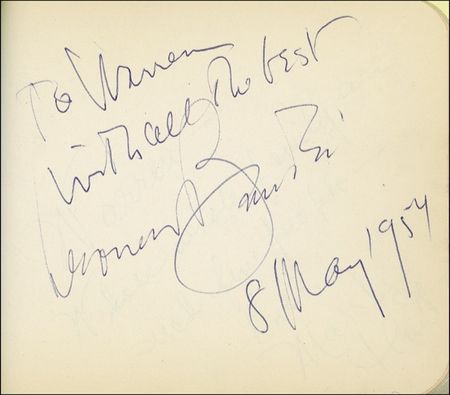 To Warren
with all the best
Leonard Bernstein
8 May 1954